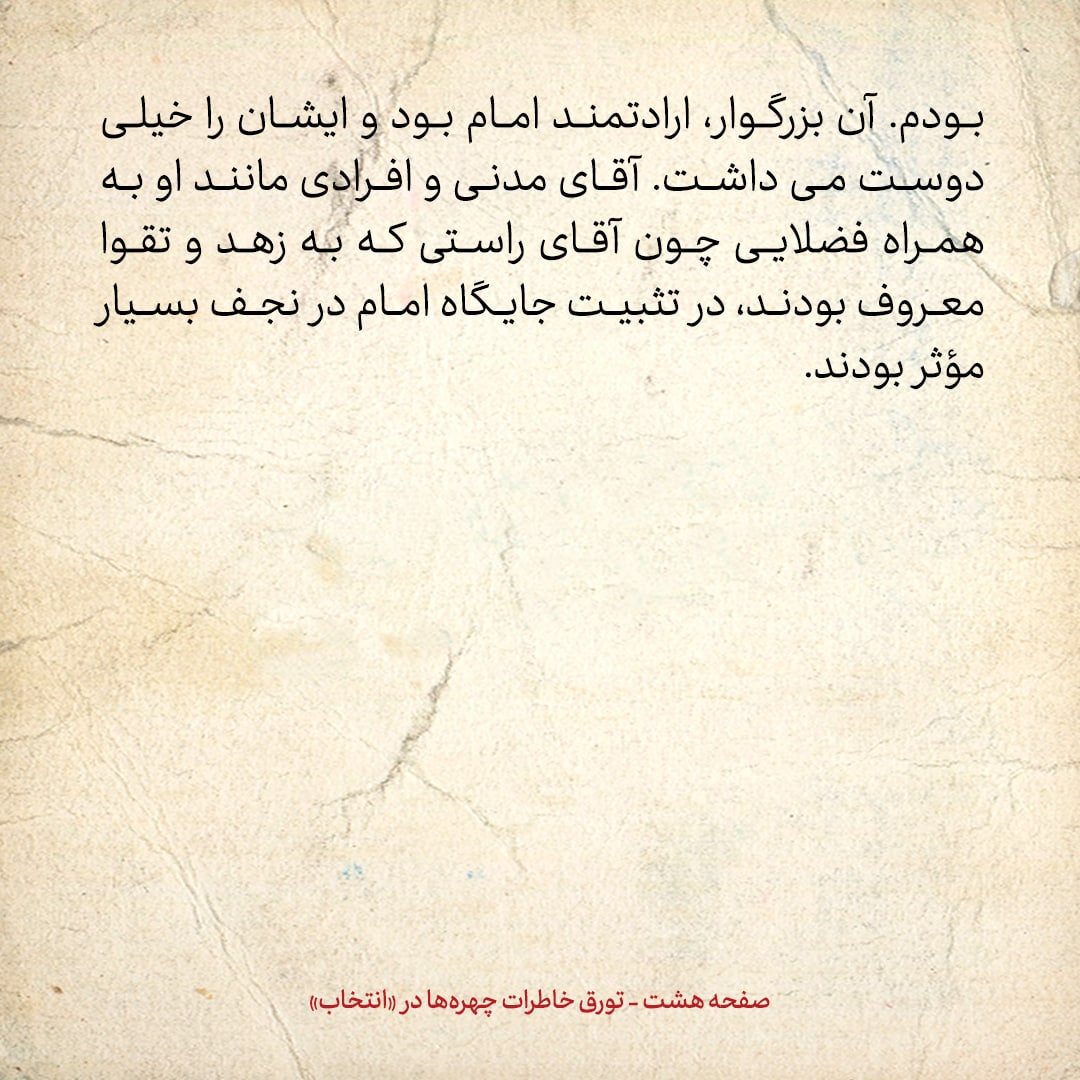 بودم. آن بزرگوار، ارادتمند امام بود و ایشان را خیلی
دوست می داشت. آقای مدنی و افرادی مانند او به
همراه فضلایی چون آقای راستی که به زهد و تقوا
معروف بودند، در تثبیت جایگاه امام در نجف بسیار
مؤثر بودند.
صفحه هشت - تورق خاطرات چهره‌ها در «انتخاب»